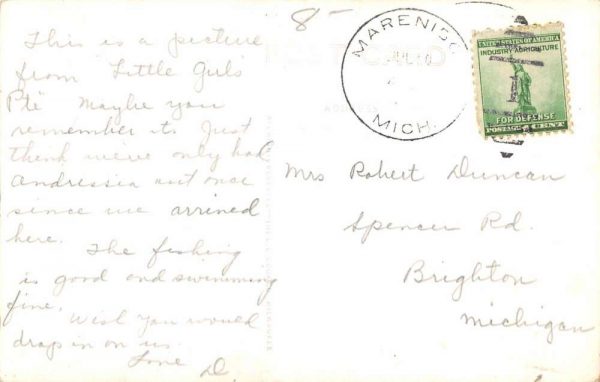 8-
This is a picture
from Little Girls
Pte Maybe you
remember it. Just
think we've only had
once
since we arrived
here.
The fishing
is good and swimming
fine.
Wish you would
drop in on us.
Love D.
MARENISC
JUL 10
MICH.
UNITED STATES OF AMERICA
INDUSTRY AGRICULTURE
1
FOR DEFENSE
POSTAGE 1 CENT
POST CARD
ADDRESS
Mrs Robert Duncan
Spencer Rd.
Brighton
Michigan